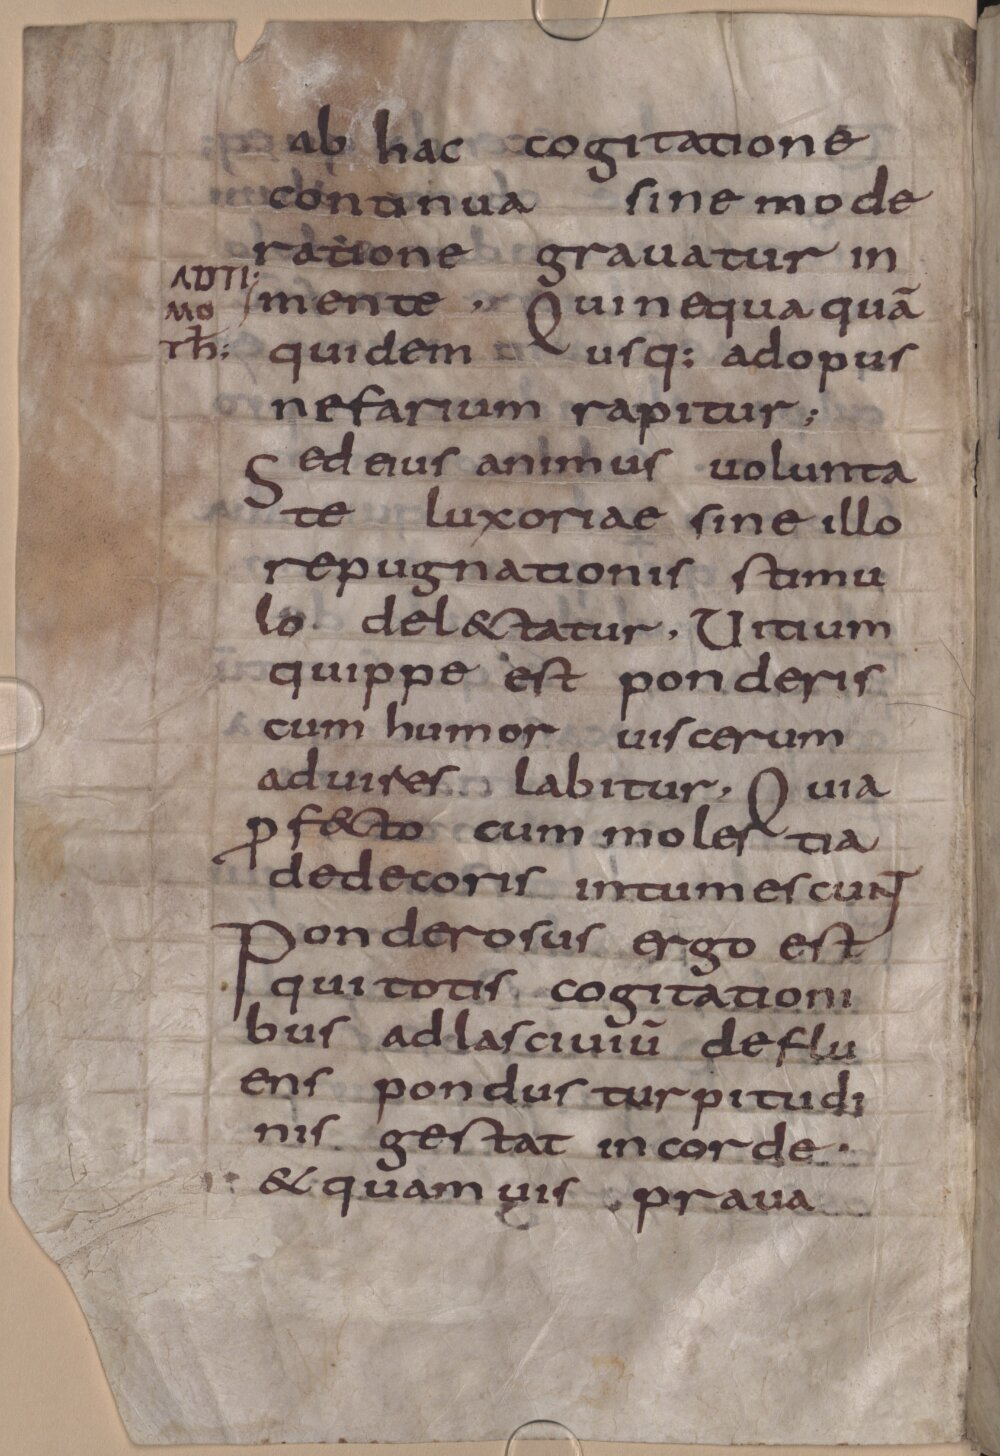 ab hac cogitatione
continua sine mode
ratione grauatur in
ADTI:
mente . Qui nequaquā
MO
quidem usq; adopus
TH;
nefarium rapitur;
Sed eius animus uolunta
te luxoriae sine illo
repugnationis stimu
lo del&tatur . Uitium
quippe est ponderis
cum humor uiscerum
aduires labitur . Quia
ꝓf&to cum moles tia
dedecoris intumescunt
Ponderosus ergo est
qui totis cogitationi
bus ad lasciuiū deflu
ens pondus turpitudi
nis gestat in corde .
& quamuis praua